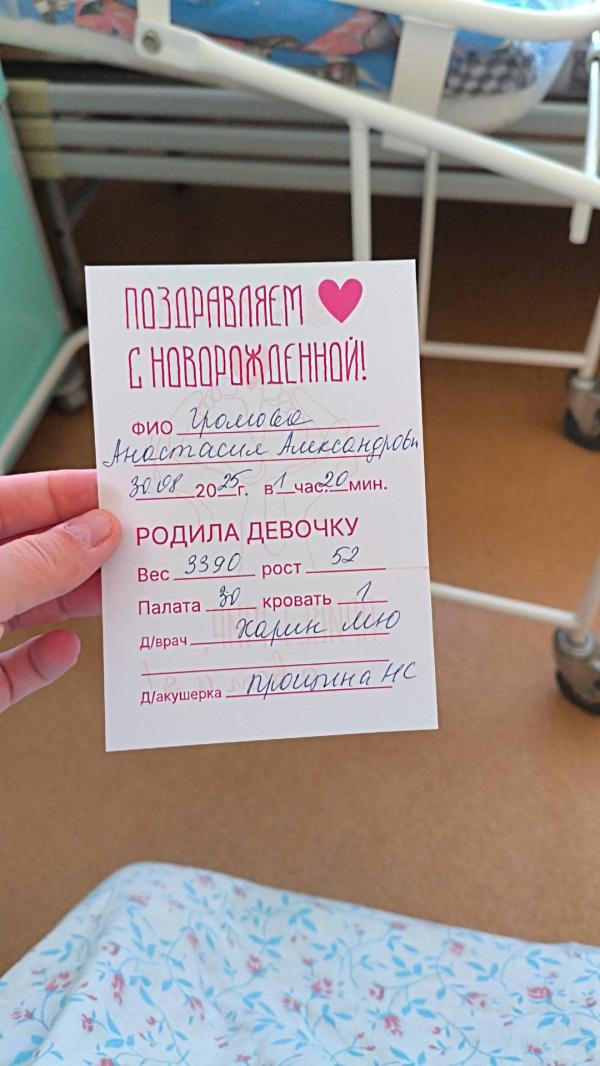 ПОЗДРАВЛЯЕМ
С НОВОРОЖДЕННОЙ!
ФИО Громова
Анастасия Александровн
30.08 2025 г. в 1 час. 20 мин.
РОДИЛА ДЕВОЧКУ
Вес 3390 рост 52
Палата 30 кровать 1
Д/врач Харин МЮ
Д/акушерка НС